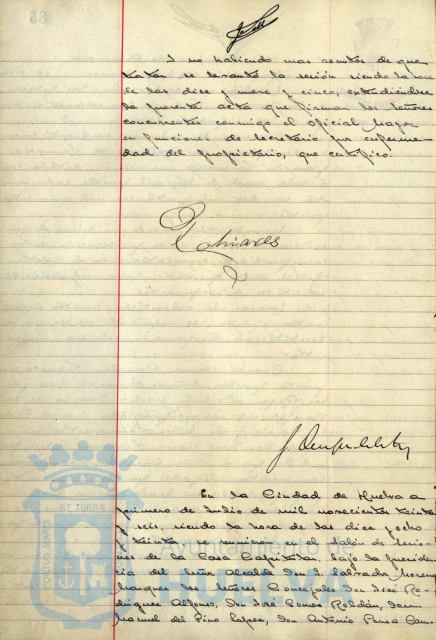 Y no habiendo mas asuntos de que
tratar se levantó la sesión siendo la hora
de las diez y nueve y cinco, extendiéndose
la presente acta que firman los señores
concurrentes conmigo el Oficial Mayor
en funciones de Secretario por enferme-
dad del propietario, que certifico.
En la Ciudad de Huelva a
primero de Junio de mil novecientos treinta
y seis, siendo la hora de las diez y ocho
y treinta se reunieron en el Salón de Sesio-
nes de la Casa Capitular, bajo la presiden-
cia del Señor Alcalde Don Salvador Moreno
Marquez los Señores Concejales Don José Ro-
driguez Alfonso, Don José Ponce Roldán, Don
Manuel del Pino Lopez, Don Antonio Cam-
PORTUS MARIS
ET TERRÆ
Ayuntamiento de
HUELVA